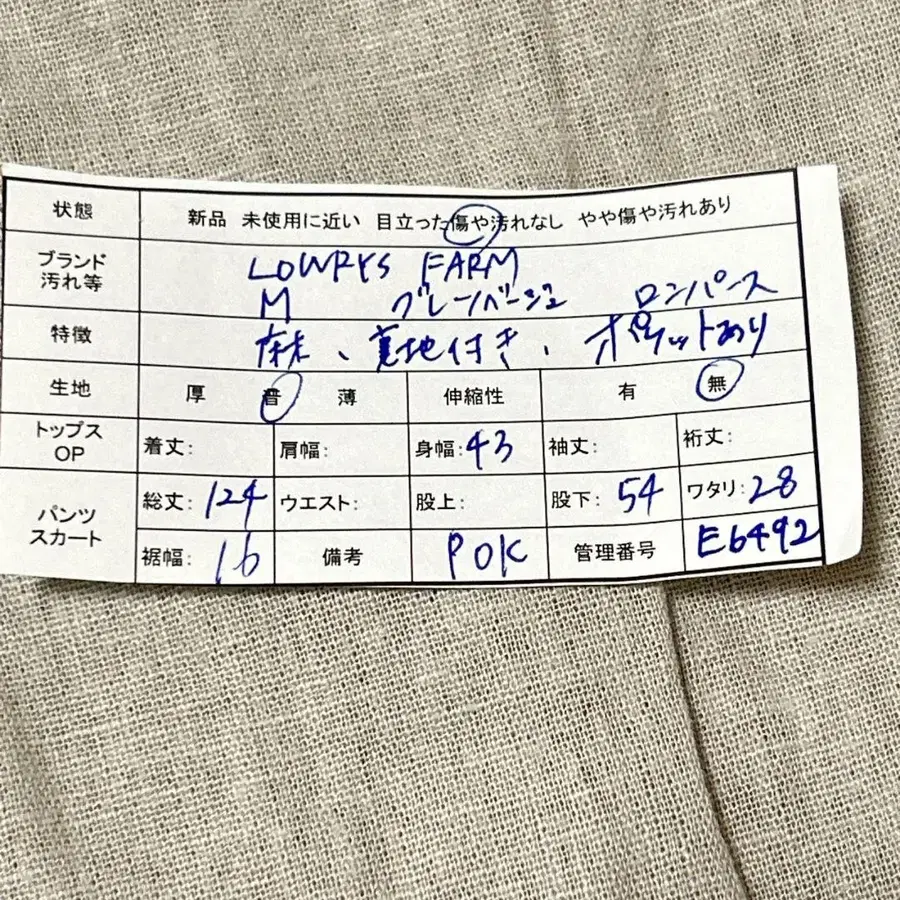 状態 新品 未使用に近い 目立った傷や汚れなし やや傷や汚れあり
ブランド LOWRYS FARM
汚れ等 M グレーベージュ ロンパース
特徴 麻、裏地付き、ポケットあり
生地 厚 普 薄 伸縮性 有 無
トップス
OP 着丈: 肩幅: 身幅:43 袖丈: 裄丈:
パンツ
スカート
総丈:124 ウエスト: 股上: 股下:54 ワタリ:28
裾幅:16 備考 POK 管理番号 E6492